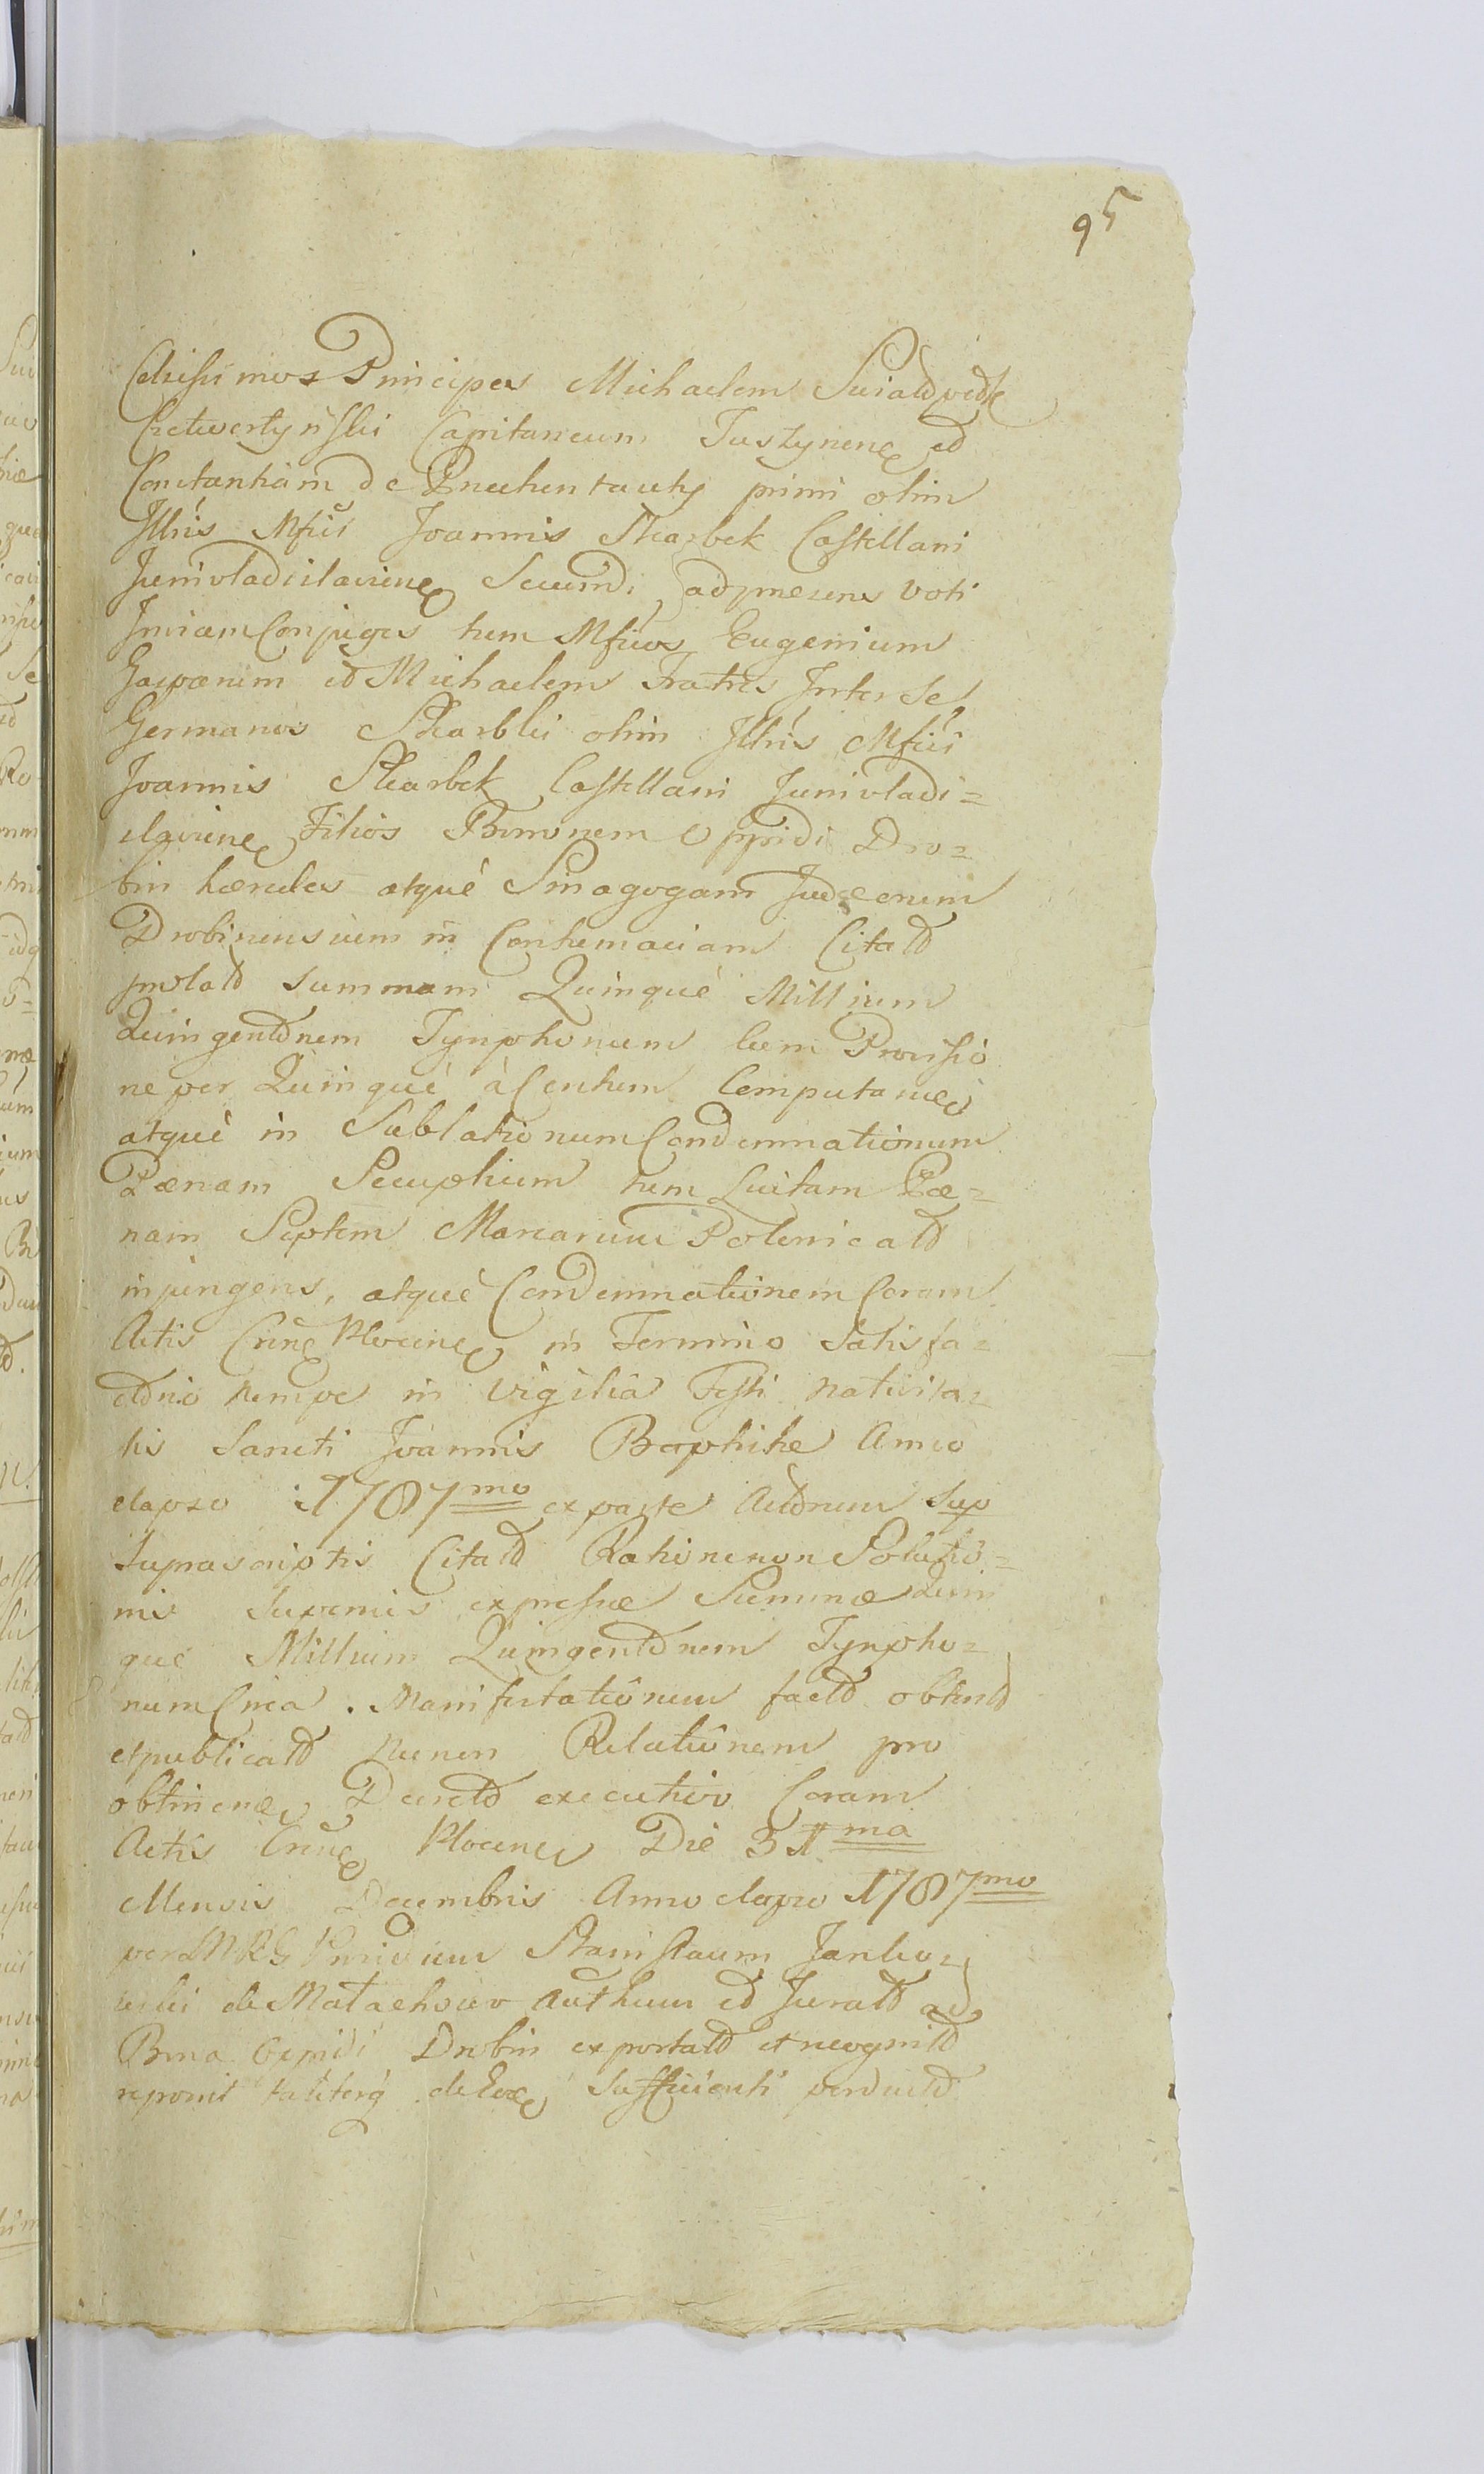 95
Celsissimos Principes Michaelem
Czetwertyński Capitaneum Tuszynens et
Constantiam de primi olim
Illris Mfici Joannis Skarbek Castellani
Junivladislaviens Secundi ad praesens voti
Invicem Conjuges tum Mficos Eugenium
Gasparum et Michaelem Fratres Inter Se
Germanos Skarbki olim Illris Mfici
Joannis Skarbek Castellani Junivladi=
slaviens Filios Bonornem Oppidi Dro=
bin haeredes atque Sinagogam Judaeorum
Drobinensium in Contumaciam Citatt
prolatt summam Quinque Millium
Quingenttnem Tynphonum cum Provisio
ne per Quinque à Centum Computanda
atque in Sublationum Condemnationum
Paenam Secuplium tum Luitam Pae=
nam Septem Marcarum Polonicatt
injungens, atque Condemnationem Coram
Actis Crens Plocens in Termino Satisfa=
cttnio nempe in vigilia Festi nativita=
tis Sancti Joannis Baptistae Anno
elapso 1787mo ex parte Acttnum Sup
Suprascriptis Citatt Rationenon Solutio=
nis Superius expressae Summae Quin
que Millium Quingenttnem Tynpho=
num Circa Manifestationem factt obtentt
et publicatt nunon Relationem pro
obtinen Decrett executivo Coram
Actis Crens Plocens Die 31ma
Mensis Decembris Anno elapso 1787mo
per MRG Providum Stanislaum Janko=
wski de Authum et Juratt ad
Bona Oppidi Drobin exportatt et recognitt
reponit taliterq de Sufficienti perductt